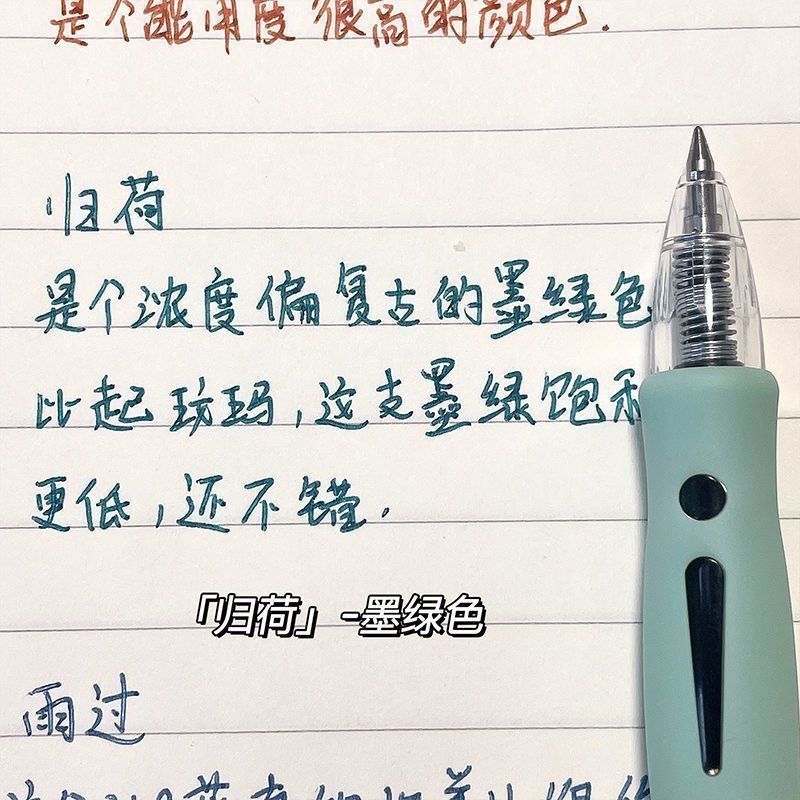 是个能用度很高的颜色.
归荷
是个浓度偏复古的墨绿色
比起玫玛,这支墨绿饱和
更低,还不错.
「归荷」-墨绿色
雨过